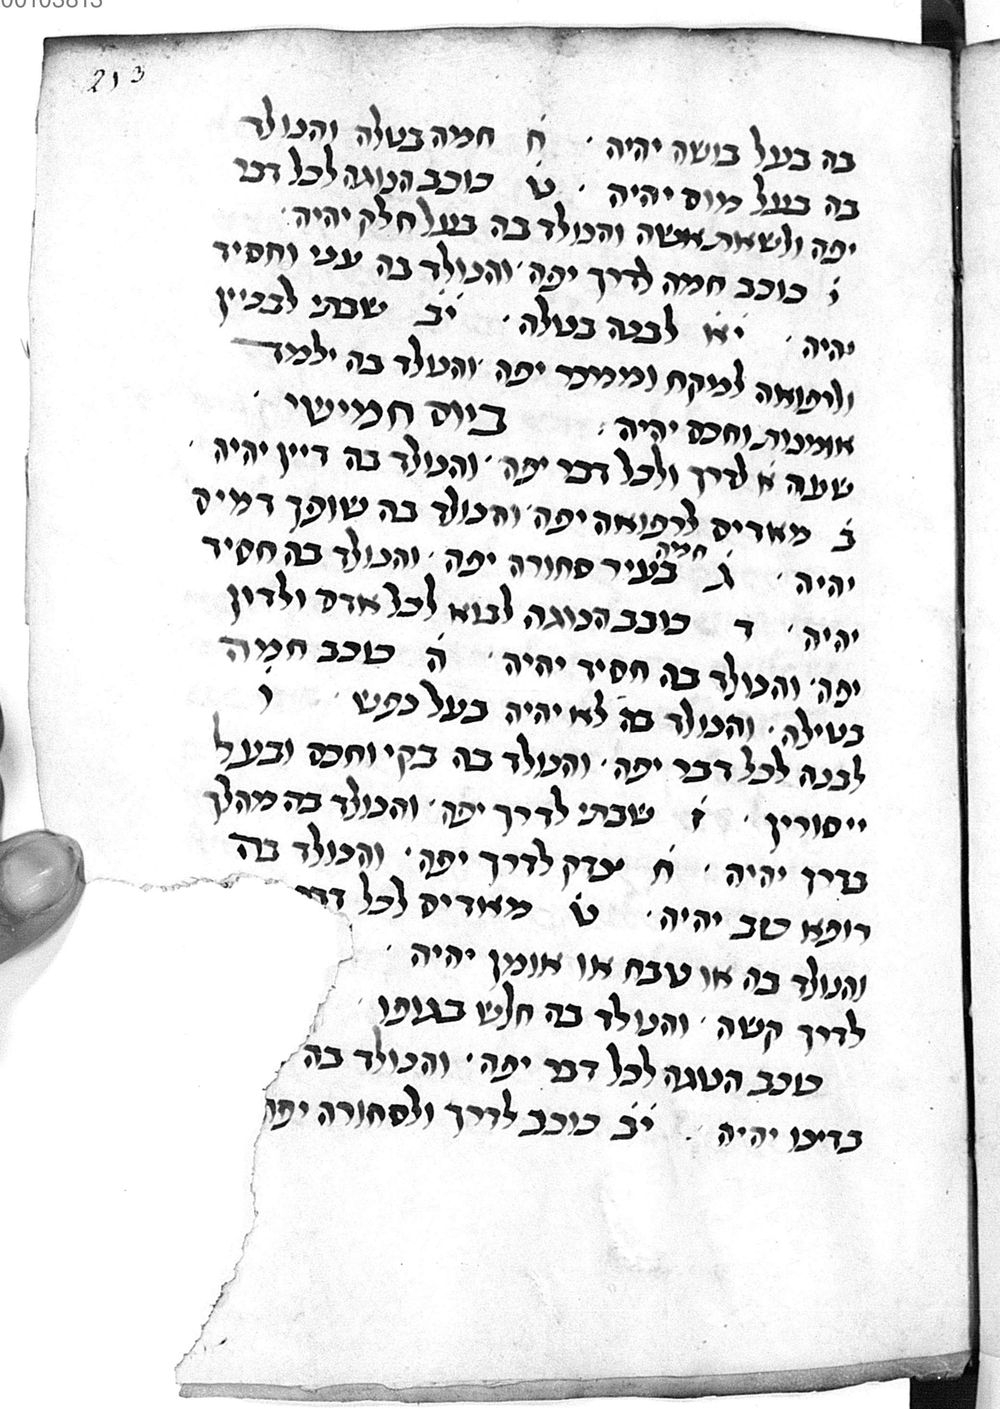 00103813
213
בה בעל בושה יהיה · ח חמה בטלה והנולד
בה בעל מום יהיה · ט כוכב הנוגה לכל דבר
יפה ולשאת אשה והנולד בה בעל חלק יהיה ·
י כוכב חמה לדרך יפה · והנולד בה עני וחסיד
יהיה · יא לבנה בטלה · יב שבתי לבניין
ולרפואה למקח וממכר יפה · והנולד בה ילמד
אומנות וחכם יהיה : ביום חמישי ·
שעה א לדרך ולכל דבר יפה · והנולד בה דיין יהיה ·
ב מאדים לרפואה יפה · והנולד בה שופך דמים
יהיה · ג חמה בעיר סחורה יפה · והנולד בה חסיד
יהיה · ד כוכב הנוגה לבוא לכל אדם ולדון
יפה · והנולד בה חסיד יהיה · ה כוכב חמה
בטילה · והנולד בה לא יהיה בעל נפש · ו
לבנה לכל דבר יפה · והנולד בה בקי וחכם ובעל
ייסורין · ז שבתי לדרך יפה · והנולד בה מהלך
בדרך יהיה · ח צדק לדרך יפה · והנולד בה
רופא טוב יהיה · ט מאדים לכל
והנולד בה או טבח או אומן יהיה ·
לדרך קשה · והנולד בה חלש בגופו
כוכב הנוגה לכל דבר יפה · והנולד בה
יהיה · יב כוכב לדרך ולסחורה יפה